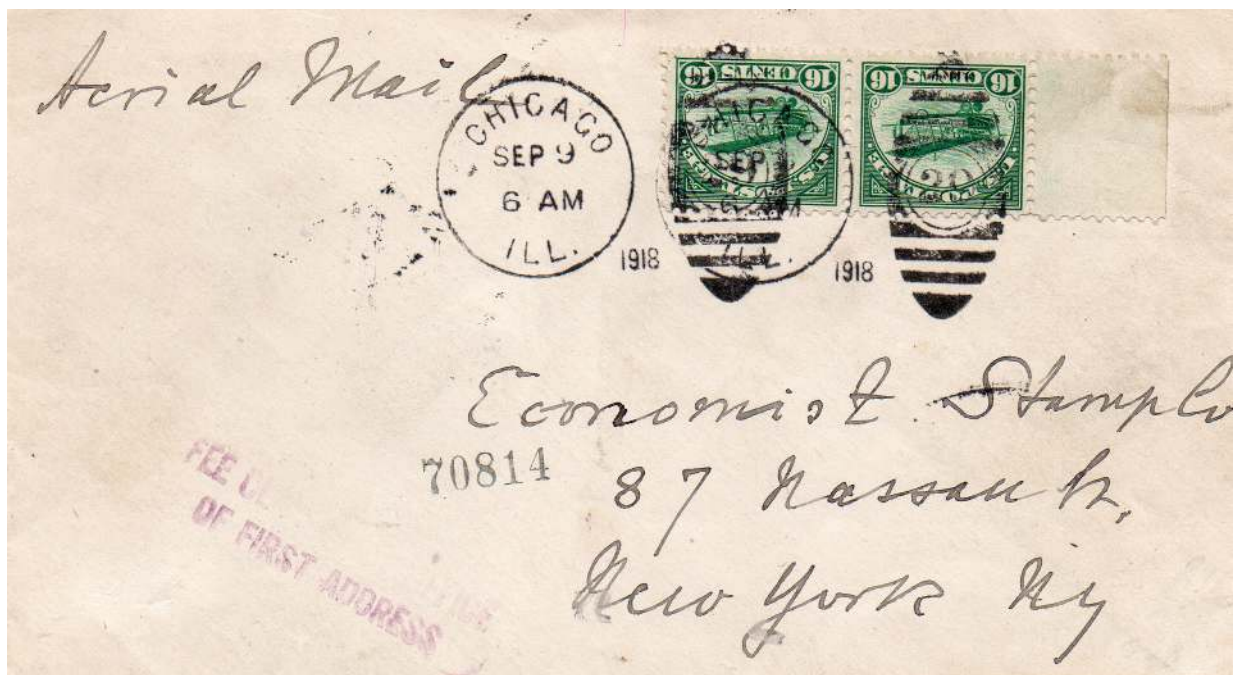 Aerial Mail
CHICAGO
SEP 9
6 AM
ILL.
1918
CHICAGO
SEP
ILL.
1918
16 CENTS 16
16 CENTS 16
U.S. POSTAGE
Economist Stamp Co
87 Nassau St,
New York NY
70814
FEE
OF FIRST ADDRESS